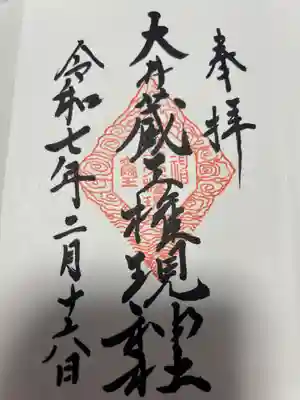 奉拝
大井蔵王権現神社
令和七年二月十八日